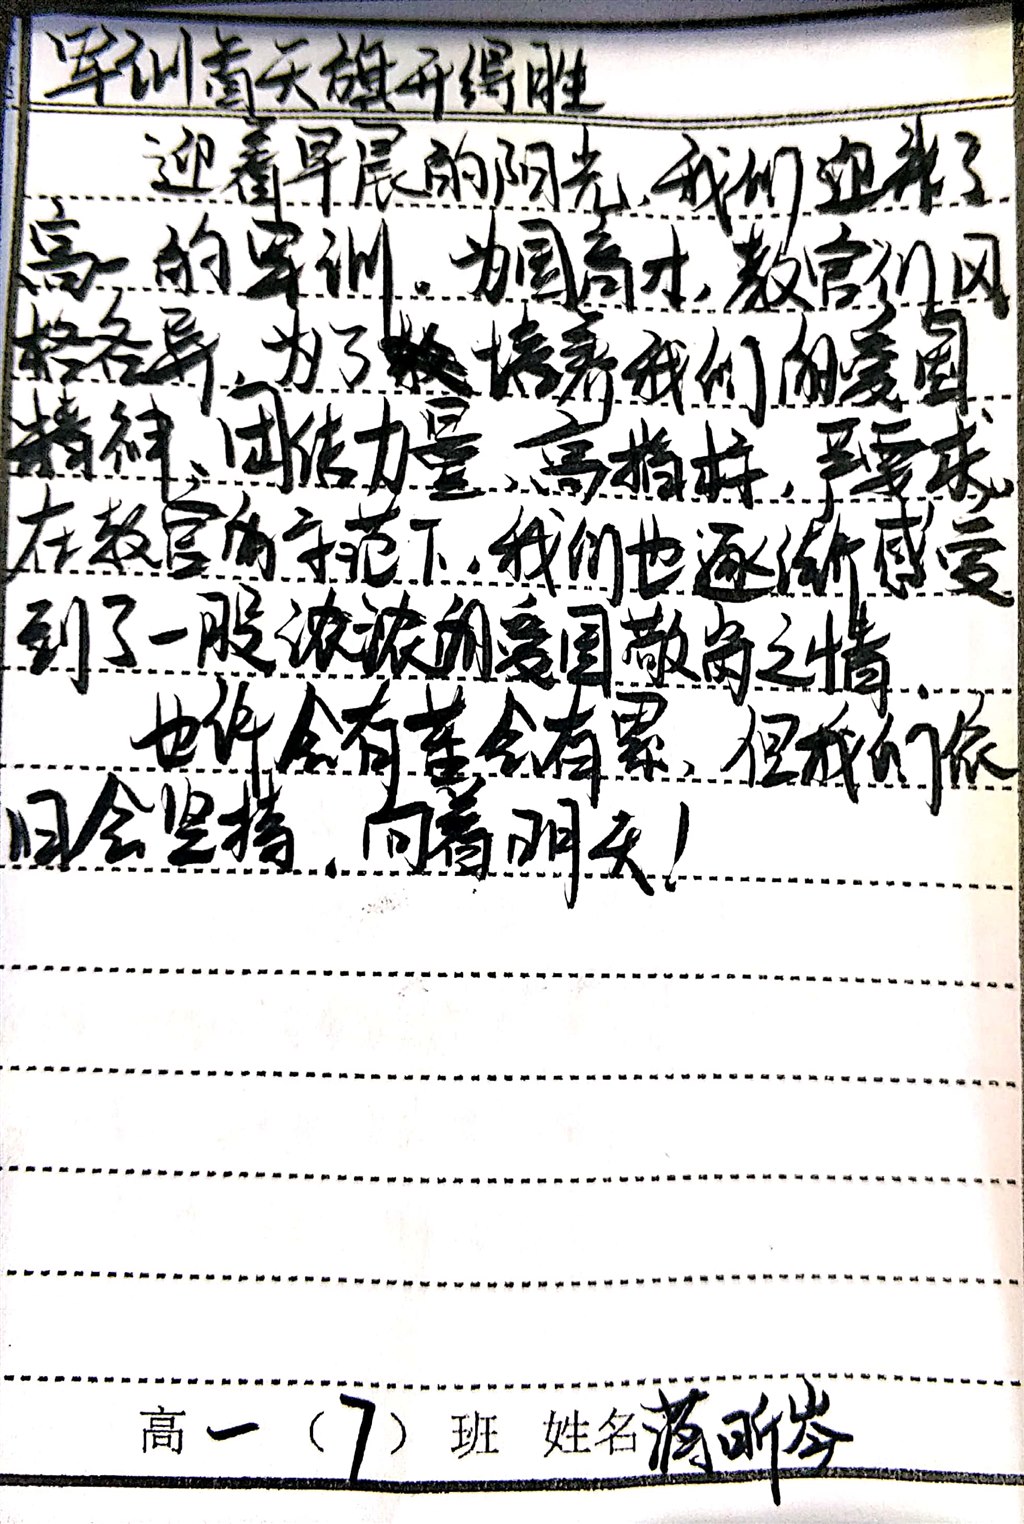 军训首天旗开得胜
迎着早晨的阳光,我们迎来了
高一的军训。为国育才,教官们风
格各异,为了培养我们的爱国
精神、团结力量、高指标,严要求,
在教官的示范下,我们也逐渐感受
到了一股浓浓的爱国敬岗之情.
也许会有苦会有累,但我们依
旧会坚持,向着明天!
高一(7)班 姓名蒋昕岑